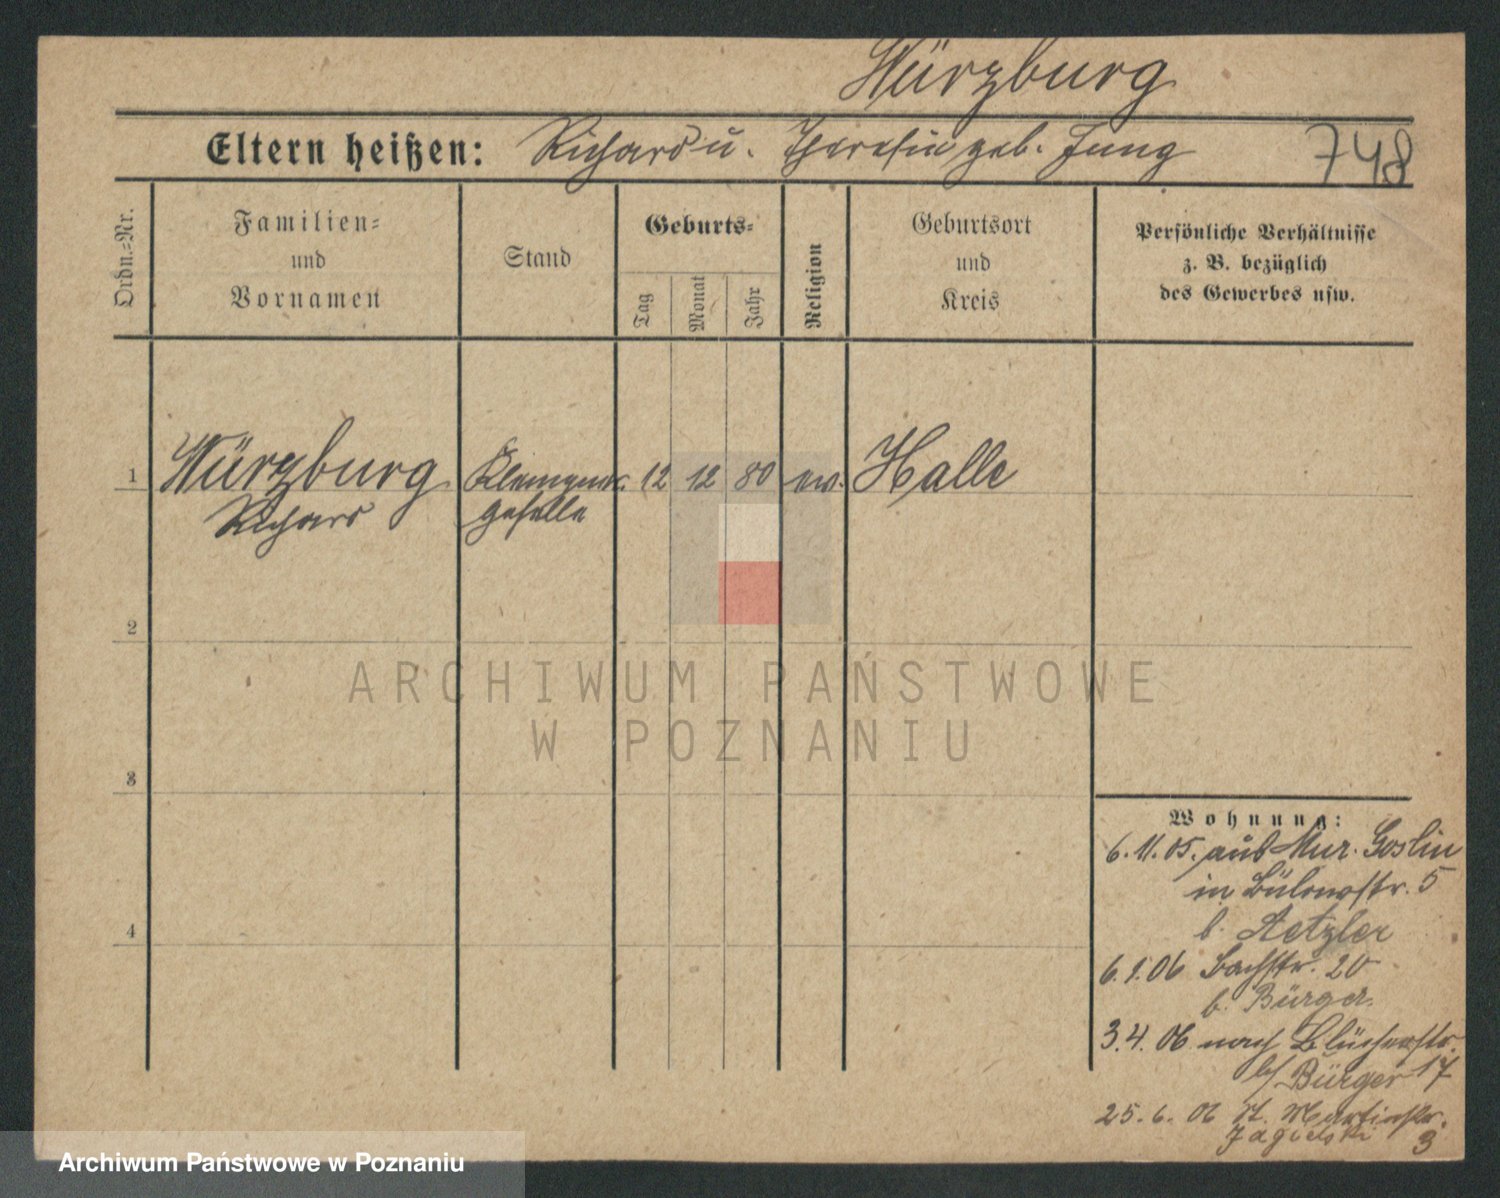 Würzburg
Eltern heißen: Richard u. Theresia geb. Jung 748
Ordn.=Nr.
Familien=
und
Vornamen
Stand
Geburts=
Tag
Monat
Jahr
Religion
Geburtsort
und
Kreis
Persönliche Verhältnisse
z. B. bezüglich
des Gewerbes usw.
1 Würzburg Klempner 12 12 80 ev. Halle
Richard geselle
2
3
4
Wohnung:
6.11.05. aus Mur. Goslin
in Bülowstr. 5
b. Aetzler
6.1.06 Bachstr. 20
b. Bürger
3.4.06 nach Blücherstr.
b/ Bürger 17
25.6.06 St. Martinstr.
Jagielski 3
ARCHIWUM PAŃSTWOWE
W POZNANIU
Archiwum Państwowe w Poznaniu